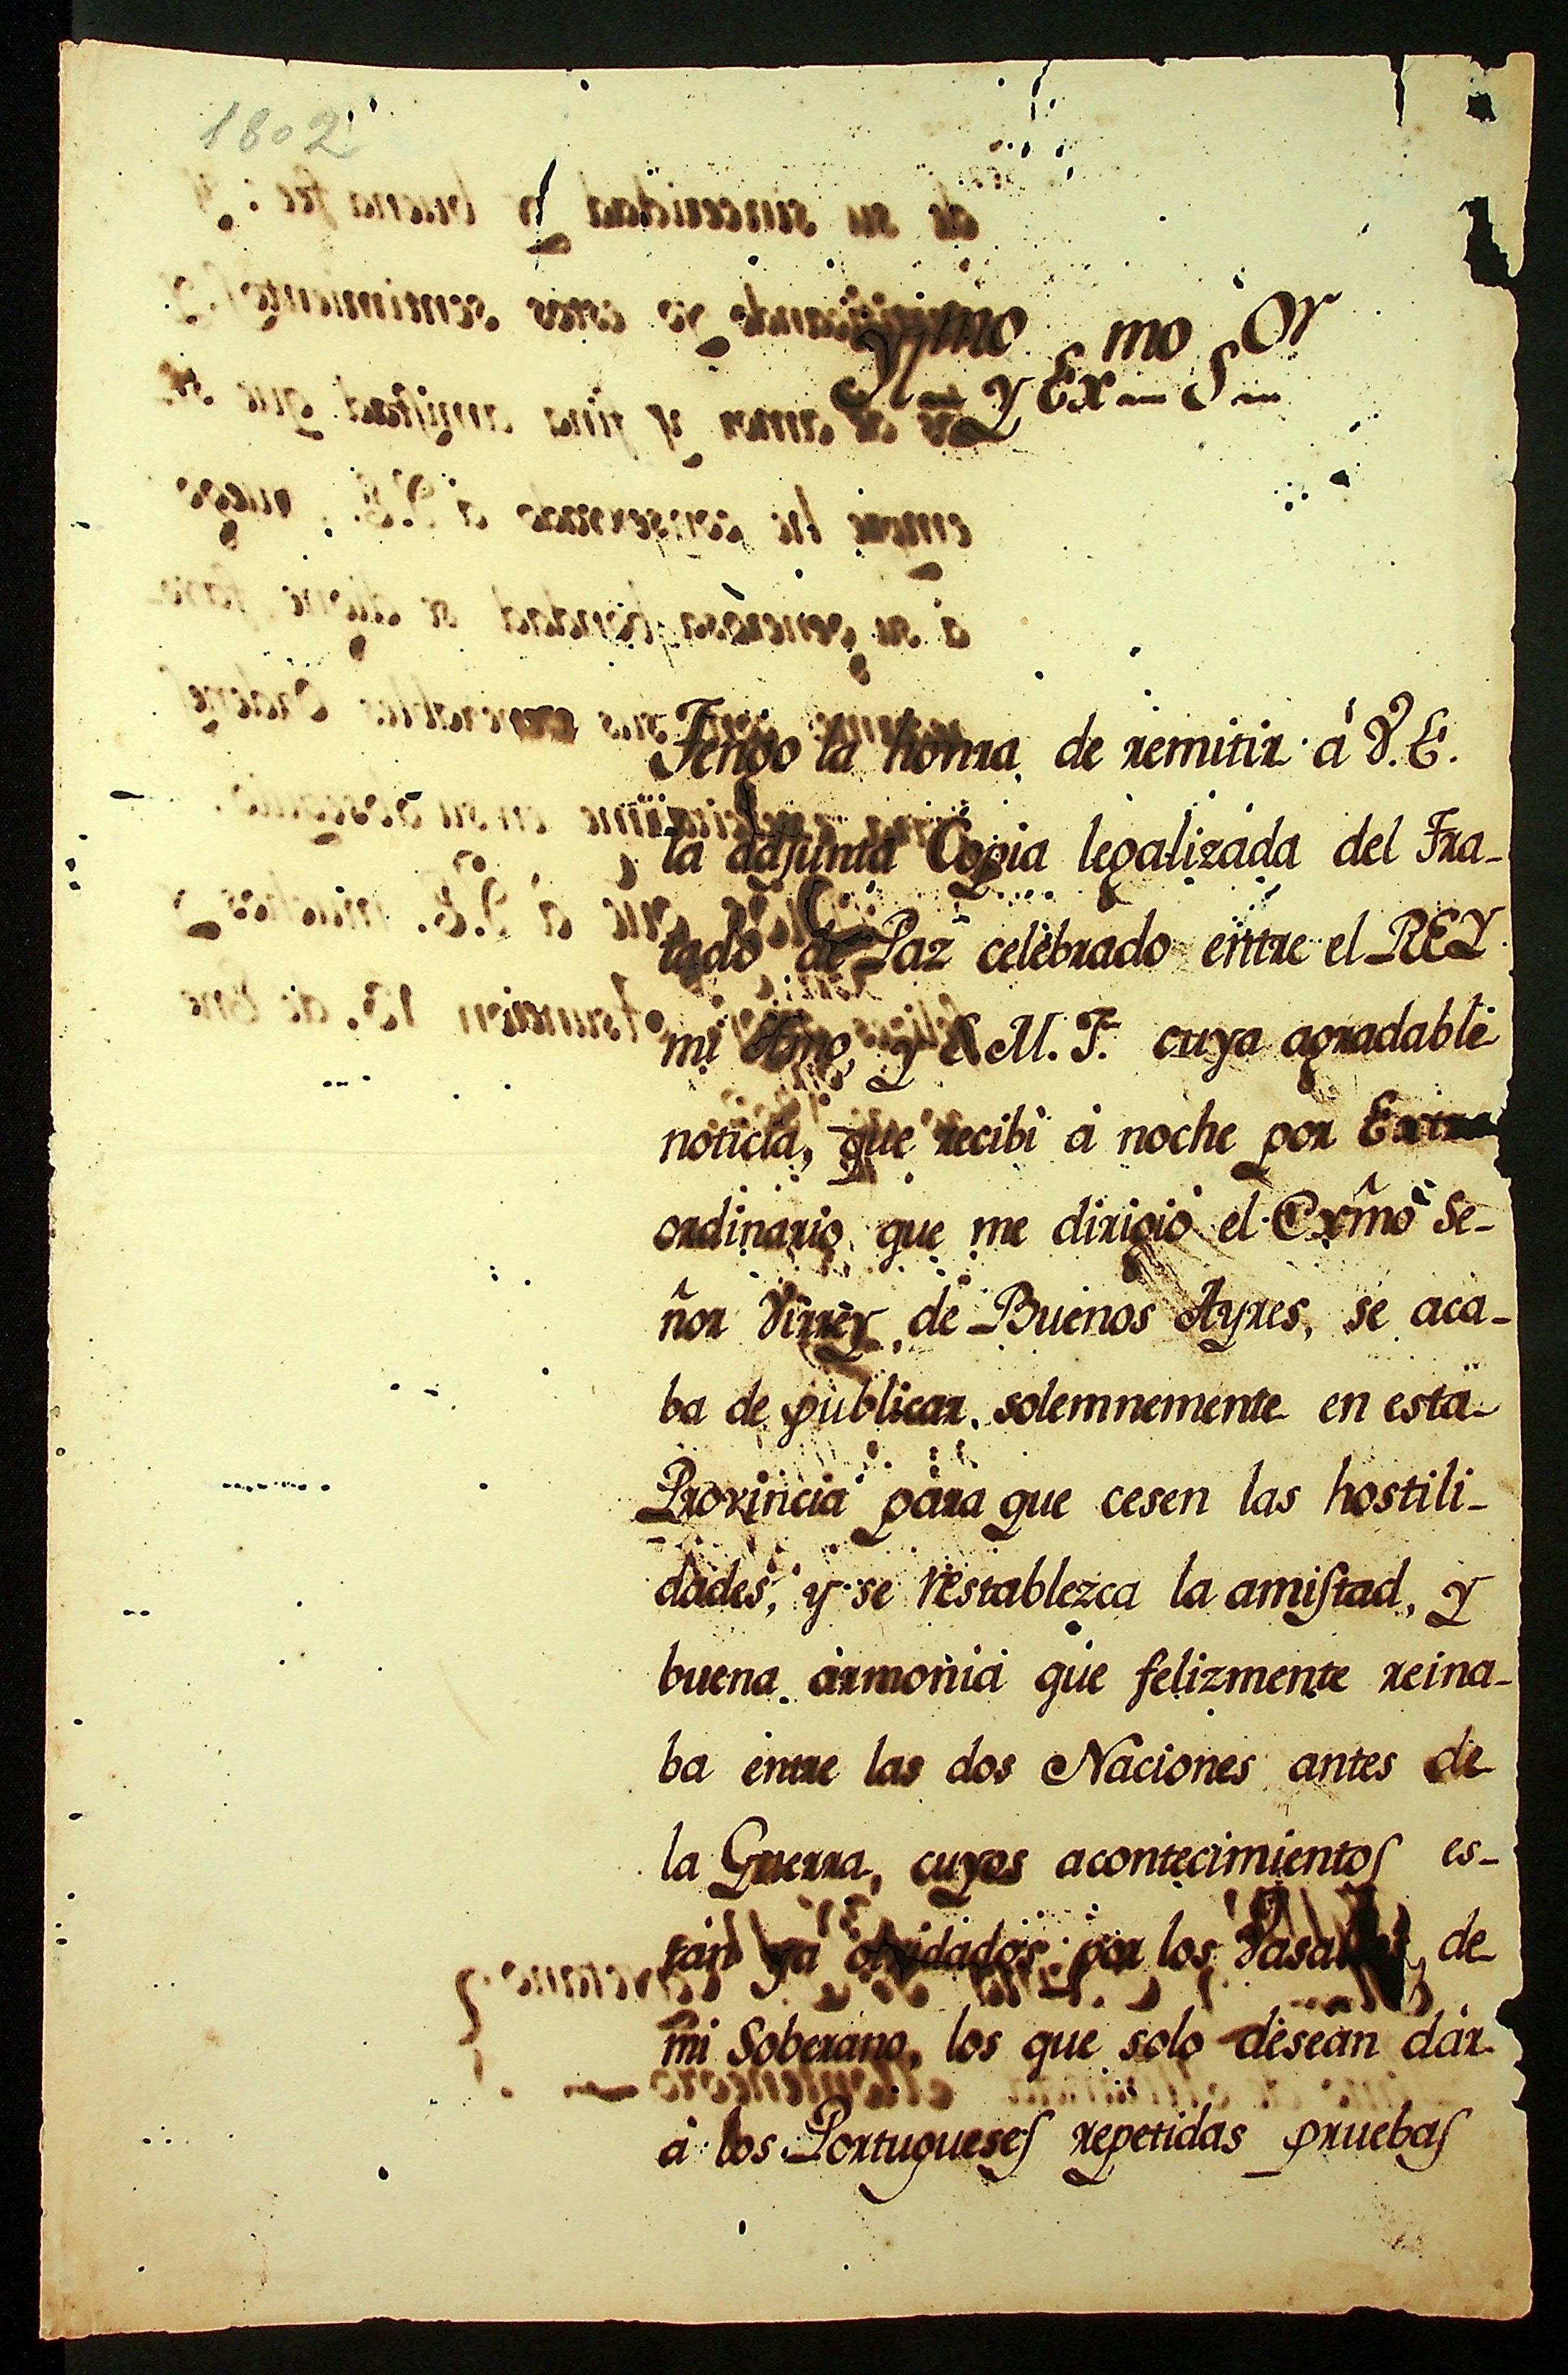 1802
Yll.mo y Ex.mo S.or
Tengo la honra de remitir à V.E.
la adjunta Copia legalizada del Tra-
tado de Paz celebrado entre el REY
mi Amo, y S.M.F. cuya agradable
noticia, que recibi à noche por Extra
ordinario que me dirigiò el Exm̃o Se-
ñor Virrey de Buenos Ayres, se aca-
ba de publicar solemnemente en esta
Provincia para que cesen las hostili-
dades, y se restablezca la amistad, y
buena armonia que felizmente reina-
ba entre las dos Naciones antes de
la Guerra, cuyos acontecimientos es-
tan ya olvidados por los Vasallos de
mi Soberano, los que solo desean dar
à los Portugueses repetidas pruebas